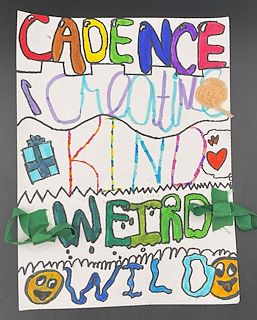 CADENCE
creative
KIND
WEIRD
WILD